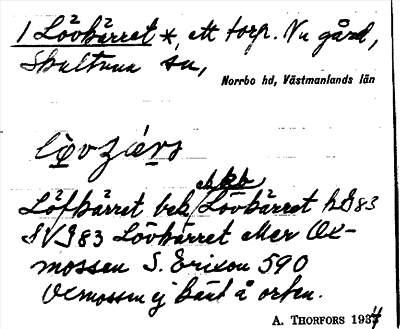 1 Lövkärret *, ett torp. Nu gård,
Skultuna sn,
Norrbo hd, Västmanlands län
Löfkärret bek. Lövkärret hS83
SVS83 Lövkärret eller Ox-
mossen S. Erixon 590
Oxmossen ej känt å orten.
A. THORFORS 1934